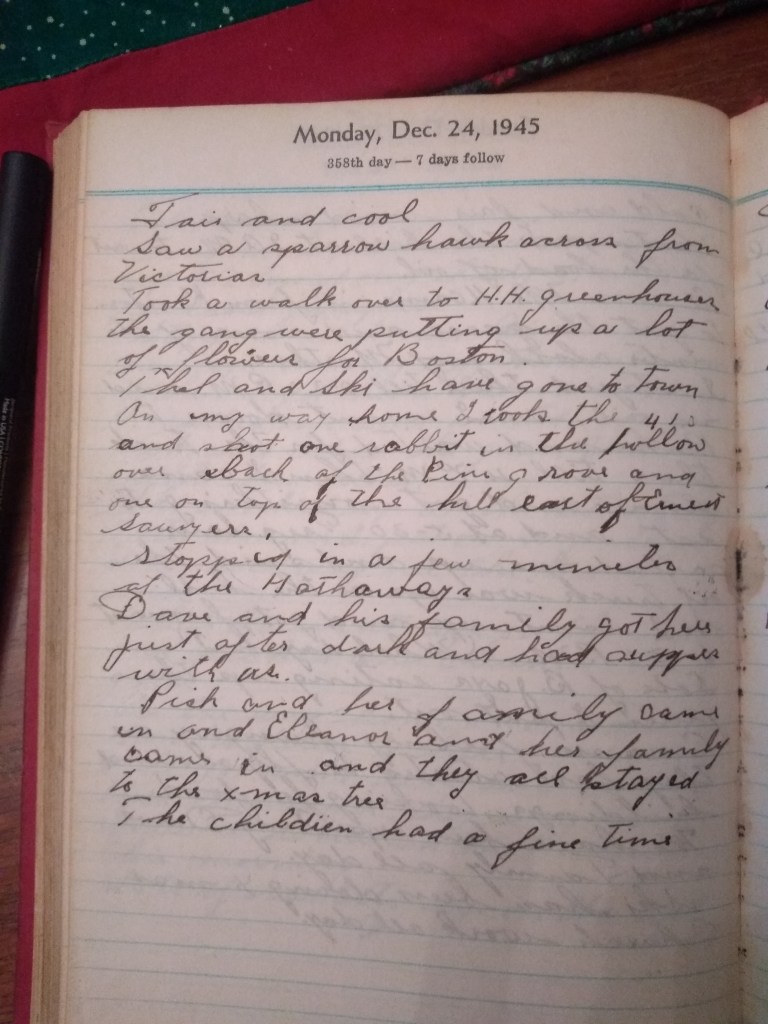 Monday, Dec. 24, 1945
358th day — 7 days follow
Fair and cool
Saw a sparrow hawk across from
Victorias
Took a walk over to H.H. greenhouses
the gang were putting up a lot
of flowers for Boston.
Thel and Ski have gone to town
On my way home I took the 410
and shot one rabbit in the hollow
over back of the Pine grove and
one on top of the hill east of Ernest
Sawyers.
stopped in a few minutes
at the Hathaways
Dave and his family got here
just after dark and had supper
with us.
Pish and her family came
in and Eleanor and her family
came in and they all stayed
to the xmas tree
The children had a fine time